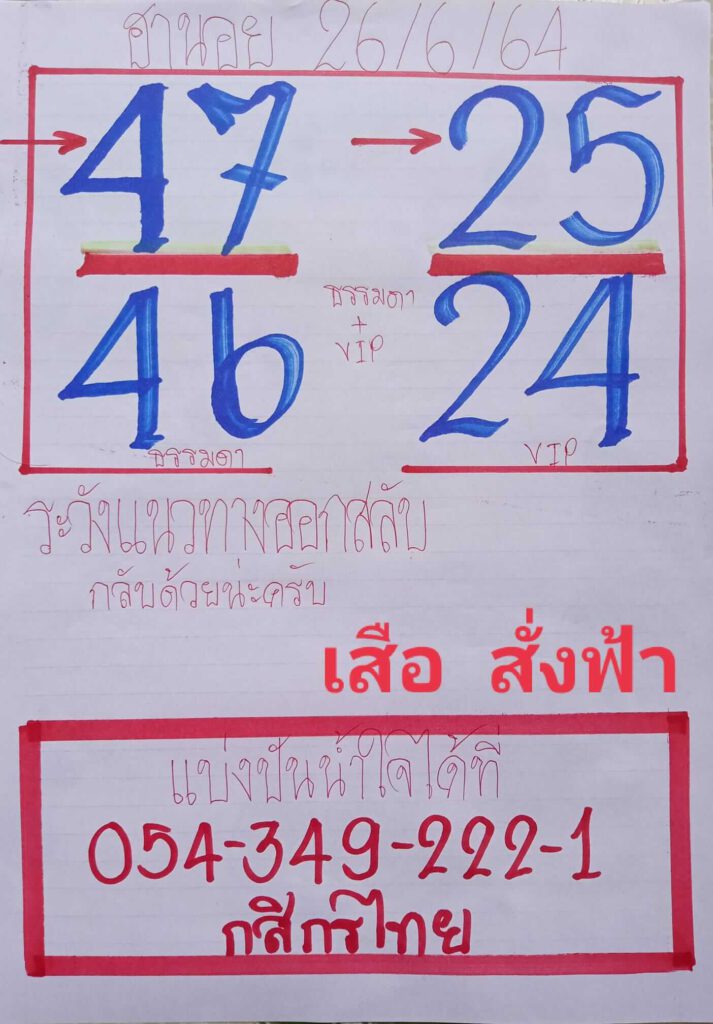 ฮานอย 26/6/64
47 25
46 24
ธรรมดา
+
VIP
ธรรมดา VIP
ระวังแนวทางออกสลับ
กลับด้วยน่ะครับ
เสือ สั่งฟ้า
แบ่งปันน้ำใจได้ที่
054-349-222-1
กสิกรไทย